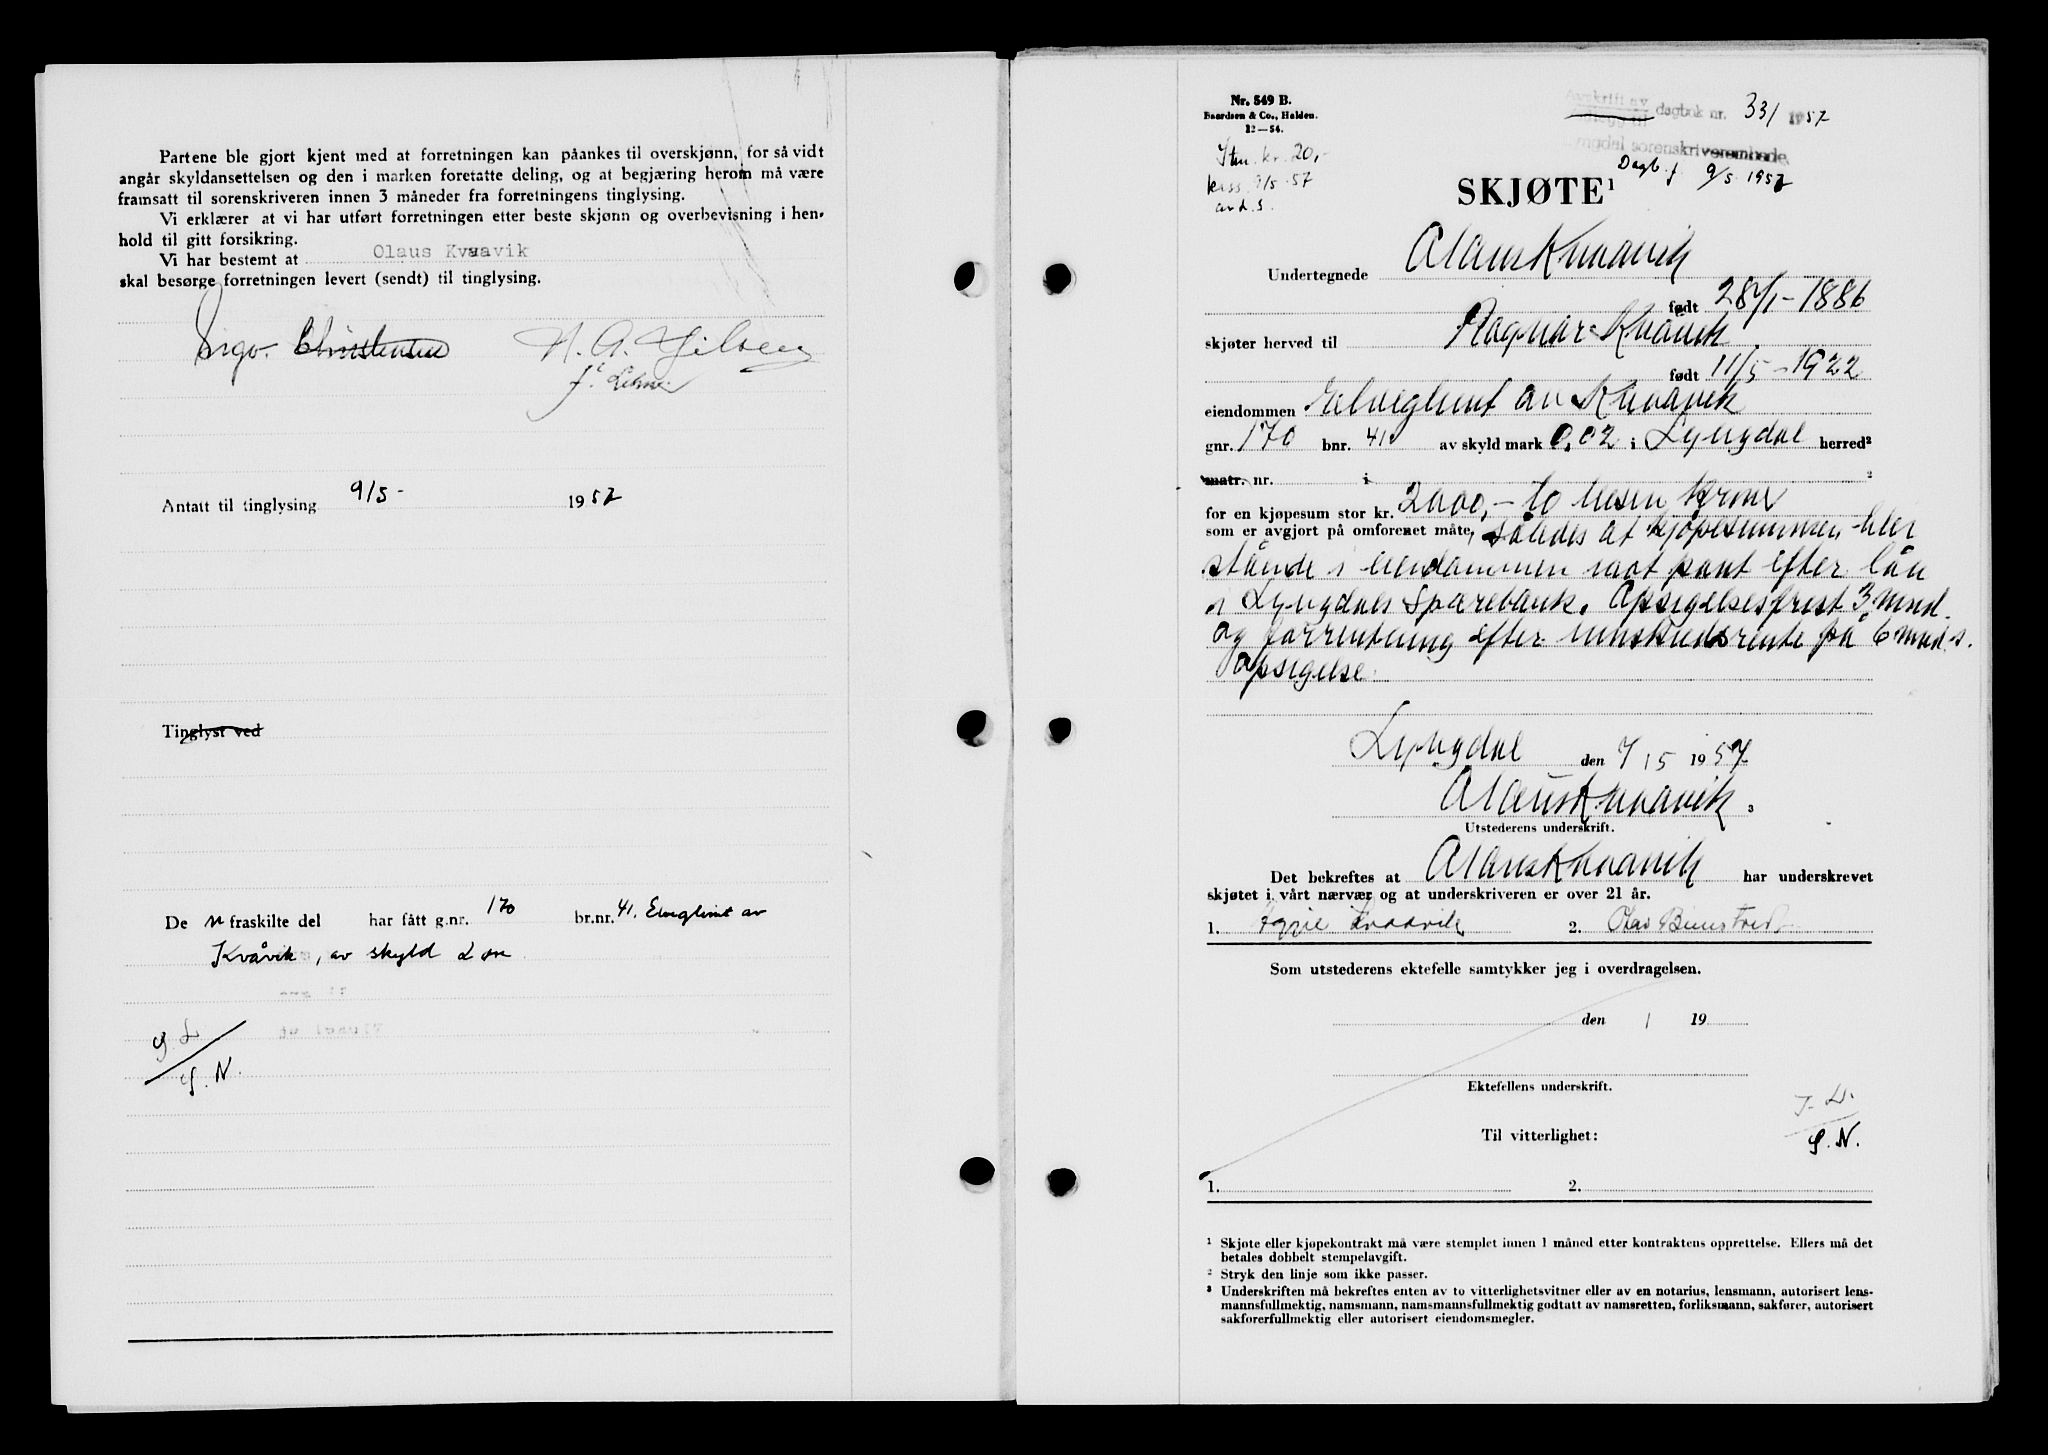 Partene ble gjort kjent med at forretningen kan påankes til overskjønn, for så vidt
angår skyldansettelsen og den i marken foretatte deling, og at begjæring herom må være
framsatt til sorenskriveren innen 3 måneder fra forretningens tinglysing.
Vi erklærer at vi har utført forretningen etter beste skjønn og overbevisning i hen-
hold til gitt forsikring.
Vi har bestemt at Olaus Kvaavik
skal besørge forretningen levert (sendt) til tinglysing.
Christensen
Antatt til tinglysing 9/5- 1957
Tinglyst ved
De fraskilte del har fått g.nr. 170 br.nr. 41. Elveglimt av
Kvåvik, av skyld 2 øre
S.N.
Nr. 549 B.
Baardsen & Co., Halden.
12—54.
Stm. kr. 20,-
kass. 9/5-57
Avskrift av
dagbok nr. 331 1957
Lyngdal sorenskriverembede
Dagb.f. 9/5 1957
SKJØTE¹
Undertegnede Olaus Kvaavik
født 28/1-1886
skjøter herved til Ragnar Kvåvik
født 11/5-1922
eiendommen Elveglimt av Kvaavik
gnr. 170 bnr. 41 av skyld mark 0,02 i Lyngdal herred²
matr. nr. i ²
for en kjøpesum stor kr. 2000,- to tusen kroner
som er avgjort på omforenet måte, således at kjøpesummen blir
stående i eiendommen mot pant efter lån
i Lyngdals Sparebank. Opsigelsesfrist 3 mnd.
og forrentning efter innskudsrente på 6 mnd.s.
opsigelse.
Lyngdal den 7/5 1957
Olaus Kvaavik ³
Utstederens underskrift.
Det bekreftes at Olaus Kvaavik har underskrevet
skjøtet i vårt nærvær og at underskriveren er over 21 år.
1. Kvaavik 2. Olav
Som utstederens ektefelle samtykker jeg i overdragelsen.
den / 19
Ektefellens underskrift.
Til vitterlighet:
S.N.
1. 2.
¹ Skjøte eller kjøpekontrakt må være stemplet innen 1 måned etter kontraktens opprettelse. Ellers må det
betales dobbelt stempelavgift.
² Stryk den linje som ikke passer.
³ Underskriften må bekreftes enten av to vitterlighetsvitner eller av en notarius, lensmann, autorisert lens-
mannsfullmektig, namsmann, namsmannsfullmektig godtatt av namsretten, forliksmann, sakfører, autorisert
sakførerfullmektig eller autorisert eiendomsmegler.